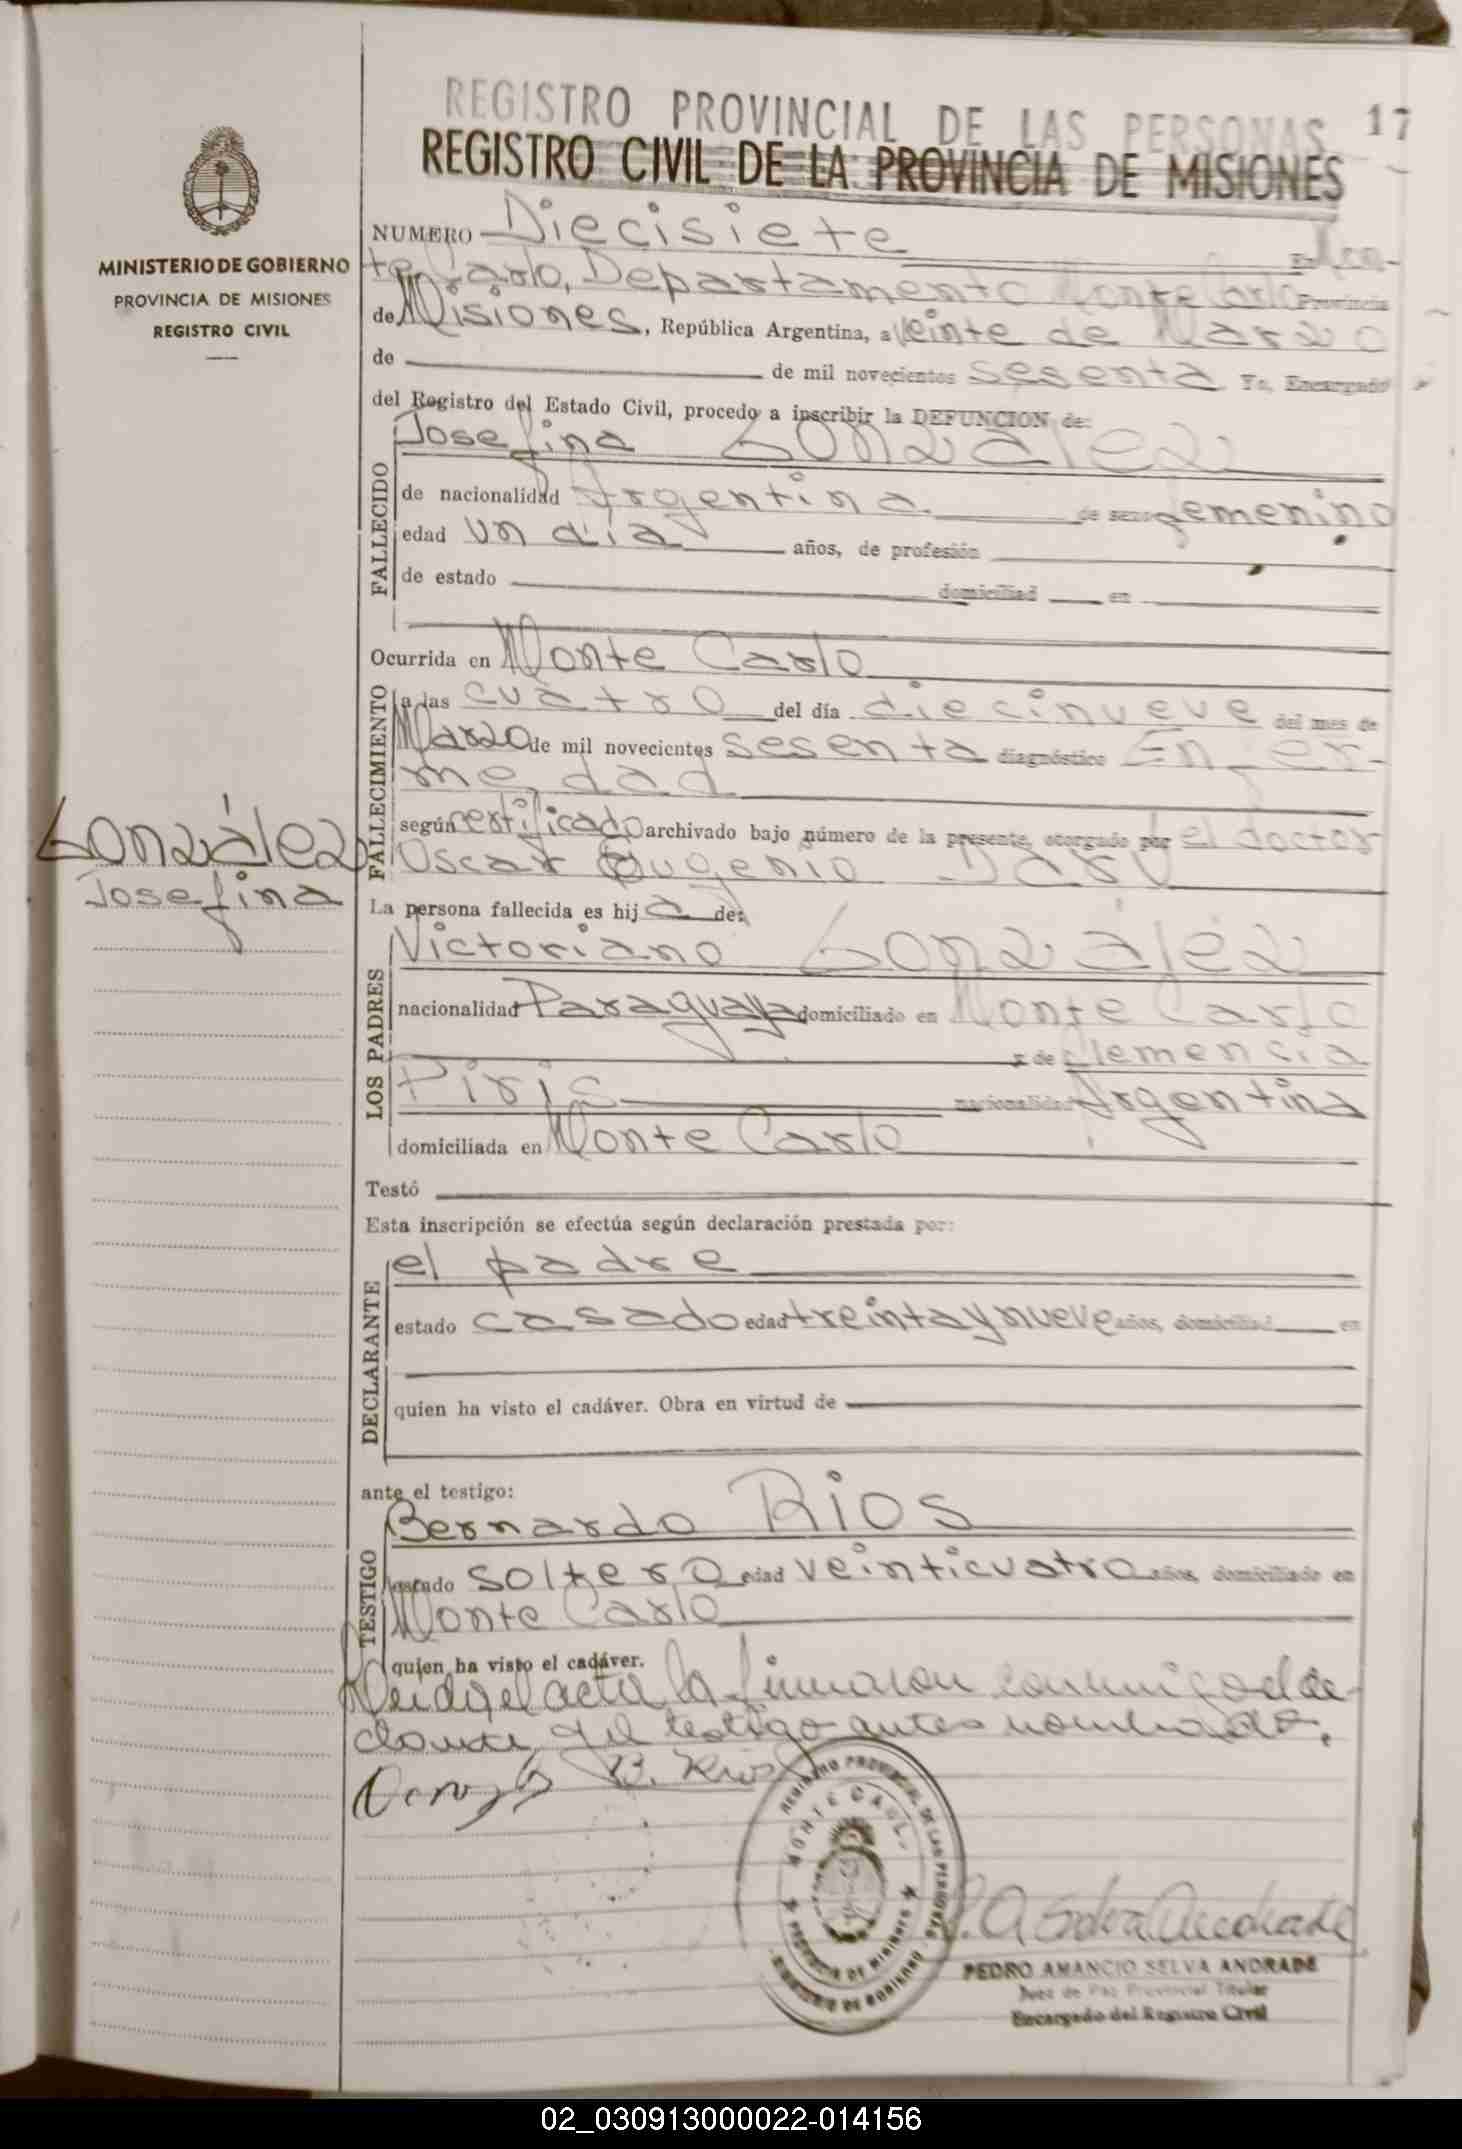 REGISTRO PROVINCIAL DE LAS PERSONAS 17
REGISTRO CIVIL DE LA PROVINCIA DE MISIONES
MINISTERIO DE GOBIERNO
PROVINCIA DE MISIONES
REGISTRO CIVIL
NUMERO Diecisiete En Mon-
te Carlo, Departamento Monte Carlo Provincia
de Misiones, República Argentina, a Veinte de Marzo
de de mil novecientos sesenta Yo, Encargado
del Registro del Estado Civil, procedo a inscribir la DEFUNCION de:
FALLECIDO
Josefina González
de nacionalidad Argentina de sexo femenino
edad un día años, de profesión
de estado domiciliad en
Ocurrida en Monte Carlo
FALLECIMIENTO
a las cuatro del día diecinueve del mes de
Marzo de mil novecientos sesenta diagnóstico Enfer-
medad
según certificado archivado bajo número de la presente, otorgado por el doctor
Oscar Eugenio Daru
González
Josefina
La persona fallecida es hij a de:
LOS PADRES
Victoriano González
nacionalidad Paraguaya domiciliado en Monte Carlo
y de Clemencia
Piris nacionalidad Argentina
domiciliada en Monte Carlo
Testó
Esta inscripción se efectúa según declaración prestada por:
DECLARANTE
el padre
estado casado edad treinta y nueve años, domiciliad en
quien ha visto el cadáver. Obra en virtud de
ante el testigo:
TESTIGO
Bernardo Rios
estado soltero edad veinticuatro años, domiciliado en
Monte Carlo
quien ha visto el cadáver.
Leida el acta la firmaron conmigo el de-
clarante y el testigo antes nombrado.
B. Rios
REGISTRO PROVINCIAL DE LAS PERSONAS
MONTE CARLO
PROVINCIA DE MISIONES
MINISTERIO DE GOBIERNO
P. A. Selva Andrade
PEDRO AMANCIO SELVA ANDRADE
Juez de Paz Provincial Titular
Encargado del Registro Civil
02_030913000022-014156